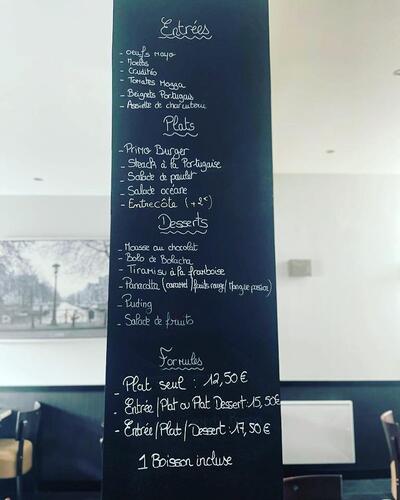 Entrées
- Oeufs Mayo
- Melos
- Crudités
- Tomates Mozza
- Beignets Portugais
- Assiette de charcuterie
Plats
- Primo Burger
- Steack à la Portugaise
- Salade de poulet
- Salade océane
- Entrecôte (+2€)
Desserts
- Mousse au chocolat
- Bolo de Bolacha
- Tiramisu à la framboise
- Panacotta (caramel/fruits rouge/Mangue passion)
- Puding
- Salade de fruits
Formules
- Plat seul : 12,50€
- Entrée/Plat ou Plat Dessert: 15,50€
- Entrée/Plat/Dessert: 17,50€
1 Boisson incluse